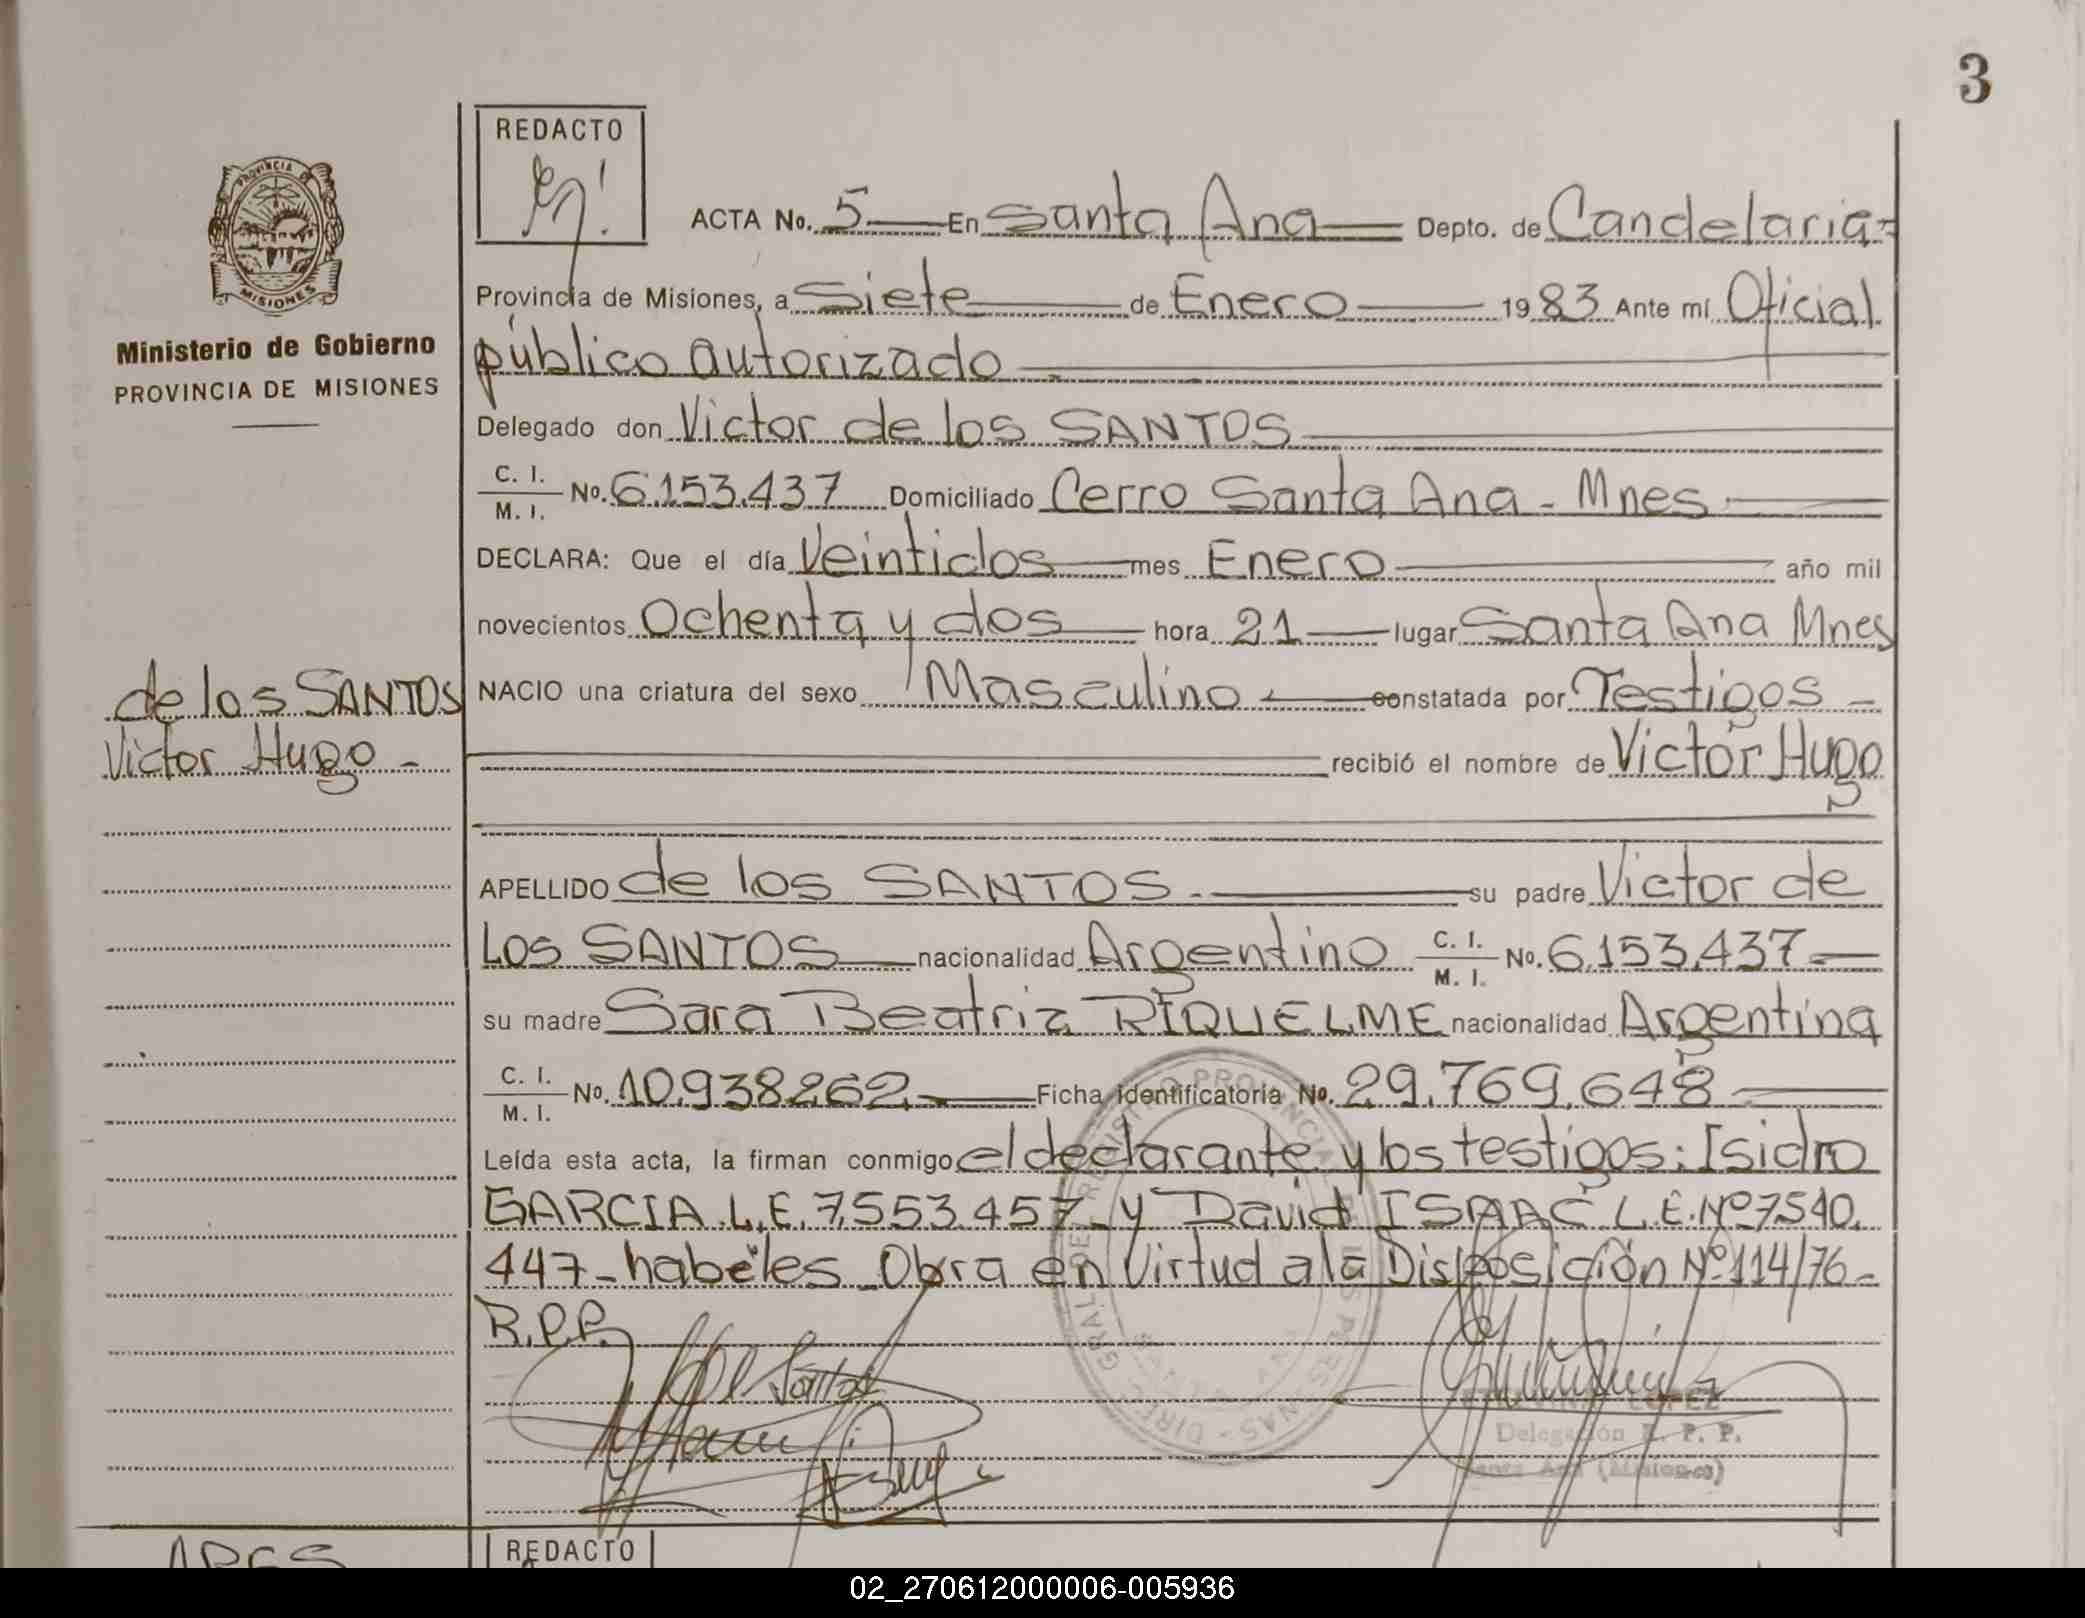 3
REDACTO
PROVINCIA DE
MISIONES
Ministerio de Gobierno
PROVINCIA DE MISIONES
ACTA No. 5 En Santa Ana Depto. de Candelaria
Provincia de Misiones, a Siete de Enero 1983 Ante mí Oficial
público autorizado
Delegado don Victor de los SANTOS
C. I. / M. I. No. 6.153.437 Domiciliado Cerro Santa Ana - Mnes
DECLARA: Que el día Veintidos mes Enero año mil
novecientos Ochenta y dos hora 21 lugar Santa Ana Mnes
de los SANTOS
Victor Hugo -
NACIO una criatura del sexo Masculino constatada por Testigos -
recibió el nombre de Victor Hugo
APELLIDO de los SANTOS - su padre Victor de
Los SANTOS nacionalidad Argentino C. I. / M. I. No. 6.153.437
su madre Sara Beatriz RIQUELME nacionalidad Argentina
C. I. / M. I. No. 10.938.262 Ficha identificatoria No. 29.769.648
Leída esta acta, la firman conmigo el declarante y los testigos: Isidro
GARCIA L.E. 7.553.457 y David ISAAC L.E. Nº 7.540.
447 - habeles Obra en Virtud a la Disposición Nº 114/76 -
R.P.P.
LOPEZ
Delegación R. P. P.
Santa Ana (Misiones)
REDACTO
02_270612000006-005936